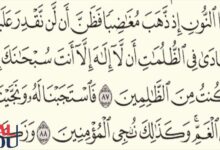 ا النُّونِ إِذ ذَّهَبَ مُغَٰضِبًا فَظَنَّ أَن لَّن نَّقْدِرَ عَلَيْ
ادَىٰ فِى الظُّلُمَٰتِ أَن لَّآ إِلَٰهَ إِلَّآ أَنتَ سُبْحَٰنَكَ
كُنتُ مِنَ الظَّٰلِمِينَ ٨٧ فَاسْتَجَبْنَا لَهُۥ وَنَجَّيْنَٰ
الْغَمِّ ۚ وَكَذَٰلِكَ نُـۨجِى الْمُؤْمِنِينَ ٨٨ وَزَكَ